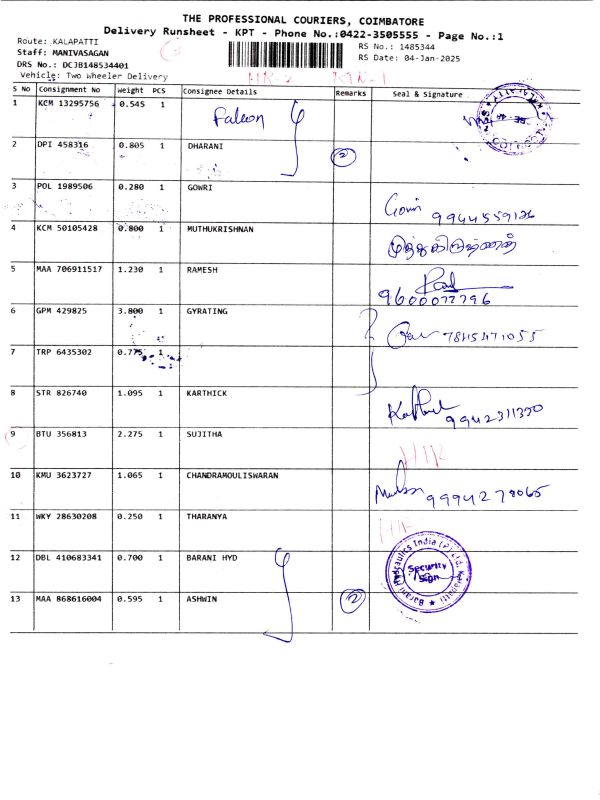 THE PROFESSIONAL COURIERS, COIMBATORE
Delivery Runsheet - KPT - Phone No.:0422-3505555 - Page No.:1
Route: KALAPATTI
Staff: MANIVASAGAN
DRS No.: DCJB148534401
Vehicle: Two Wheeler Delivery
RS No.: 1485344
RS Date: 04-Jan-2025
S No Consignment No Weight PCS Consignee Details Remarks Seal & Signature
1 KCM 13295756 0.545 1 Falcon
2 DPI 458316 0.805 1 DHARANI 2
3 POL 1989506 0.280 1 GOWRI Gowri 9944559126
4 KCM 50105428 0.800 1 MUTHUKRISHNAN
5 MAA 706911517 1.230 1 RAMESH 9600072796
6 GPM 429825 3.800 1 GYRATING
7 TRP 6435302 0.775 1
8 STR 826740 1.095 1 KARTHICK 9942311350
9 BTU 356813 2.275 1 SUJITHA
10 KMU 3623727 1.065 1 CHANDRAMOULISWARAN 9994278065
11 WKY 28630208 0.250 1 THARANYA
12 DBL 410683341 0.700 1 BARANI HYD
Barani Hydraulics India (P) Ltd. Kalapatti
Security Sign
13 MAA 868616004 0.595 1 ASHWIN 2